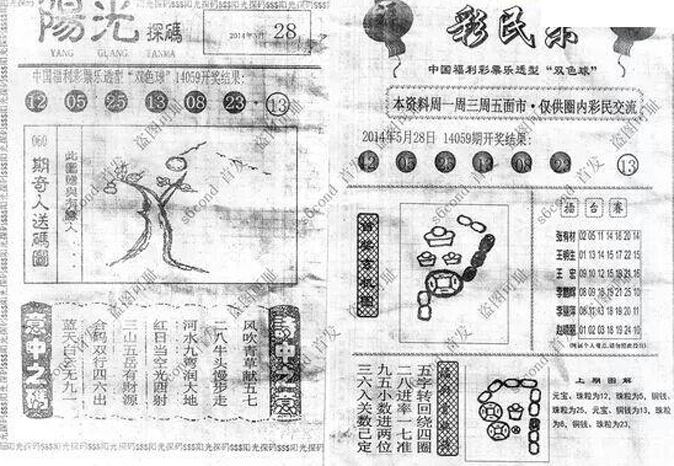 陽光 探碼
YANG GUANG TANMA
2014年5月 28
中国福利彩票乐透型“双色球”14059开奖结果:
12 05 25 13 08 23 · 13
060期奇人送碼圖
此圖贈與有緣人...
意中之意
风吹青草献五七
二八牛头慢步走
河水九弯润大地
红日当空光四射
三山五岳有財源
合码双存四六出
蓝天白云无九一
彩民乐
中国福利彩票乐透型“双色球”
本资料周一周三周五面市·仅供圈内彩民交流
2014年5月28日 14059期开奖结果:
12 05 25 13 08 23 13
擂台赛
张有材 02 05 11 14 16 20 14
王明生 01 13 14 15 17 22 15
王宏 09 10 12 15 18 21 16
上期图解
元宝、珠粒为12,珠粒为5,铜钱、
珠粒为25,元宝、铜钱为13,珠粒
为8,铜钱、珠粒为23,
五字转回绕四圈
二八进率一七准
九五小数进两位
三六入关数己定
s6cond 首发 盗图可耻